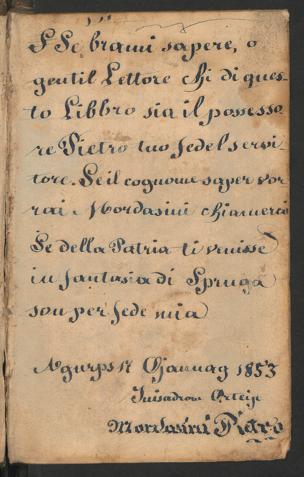 S Se brami sapere, o
gentil Lettore chi di ques-
to Libbro sia il possesso
re Pietro tuo fedel servi
tore. Se il cognome saper vor
rai Mordasini chiamerai
Se della Patria ti venisse
in fantasia di Spruga
son per fede mia
17 1853
Mordasini Pietro